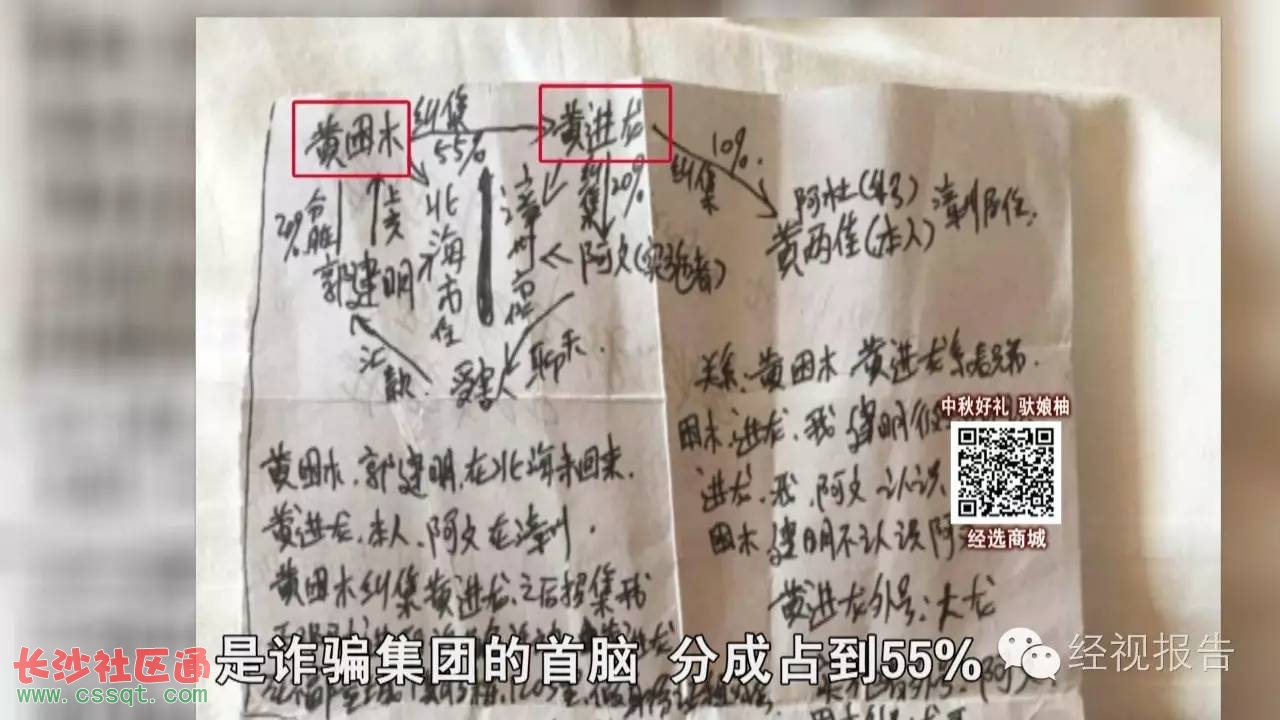 黄困木 纠集 55% 黄进龙
纠集 10%
20% 分脏 上交
北海市住
漳州市住
纠集 20%
阿杜(外号) 漳州居住.
黄两佳(本人)
郭建明
阿文(实施者)
汇款 受害人 聊天.
关系: 黄困木 黄进龙系表兄弟.
困木,进龙,我,建明
黄困木,郭建明,在北海未回来.
进龙,我,阿文 认识
黄进龙,本人,阿文在漳州.
困木 建明不认识阿
黄困木纠集黄进龙,之后招集我
黄进龙外号:大龙
中秋好礼 驮娘柚
经选商城
是诈骗集团的首脑 分成占到55%
经视报告
长沙社区通
www.cssqt.com